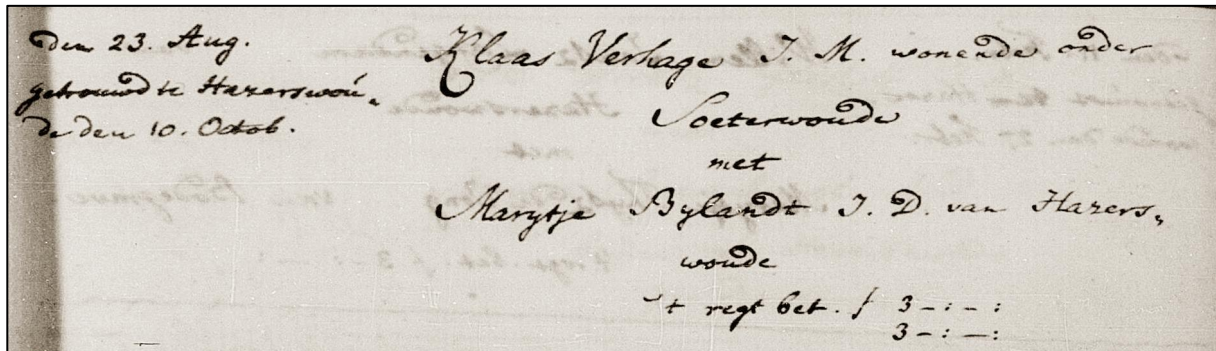 den 23. Aug.
getrouwd te Hazerswou„
de den 10. Octob.
Klaas Verhage J. M. wonende onder
Soeterwoude
met
Marytje Bylandt J. D. van Hazers„
woude
't regt bet. f 3 –:–:
3 –:–: